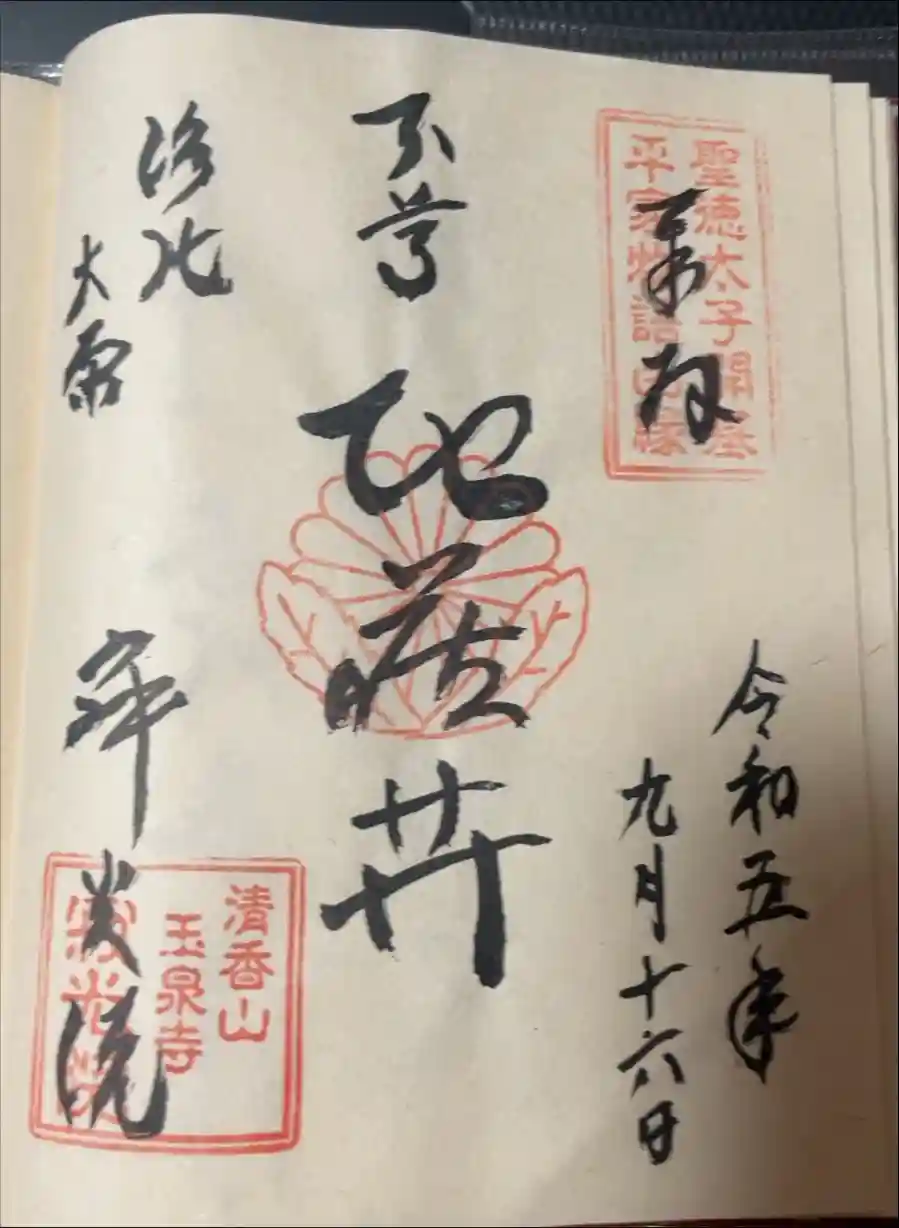 聖徳太子開基
平家物語由縁
奉拝
令和五年
九月十六日
本尊
地蔵卉
洛北
大原
寂光院
清香山
玉泉寺
寂光院